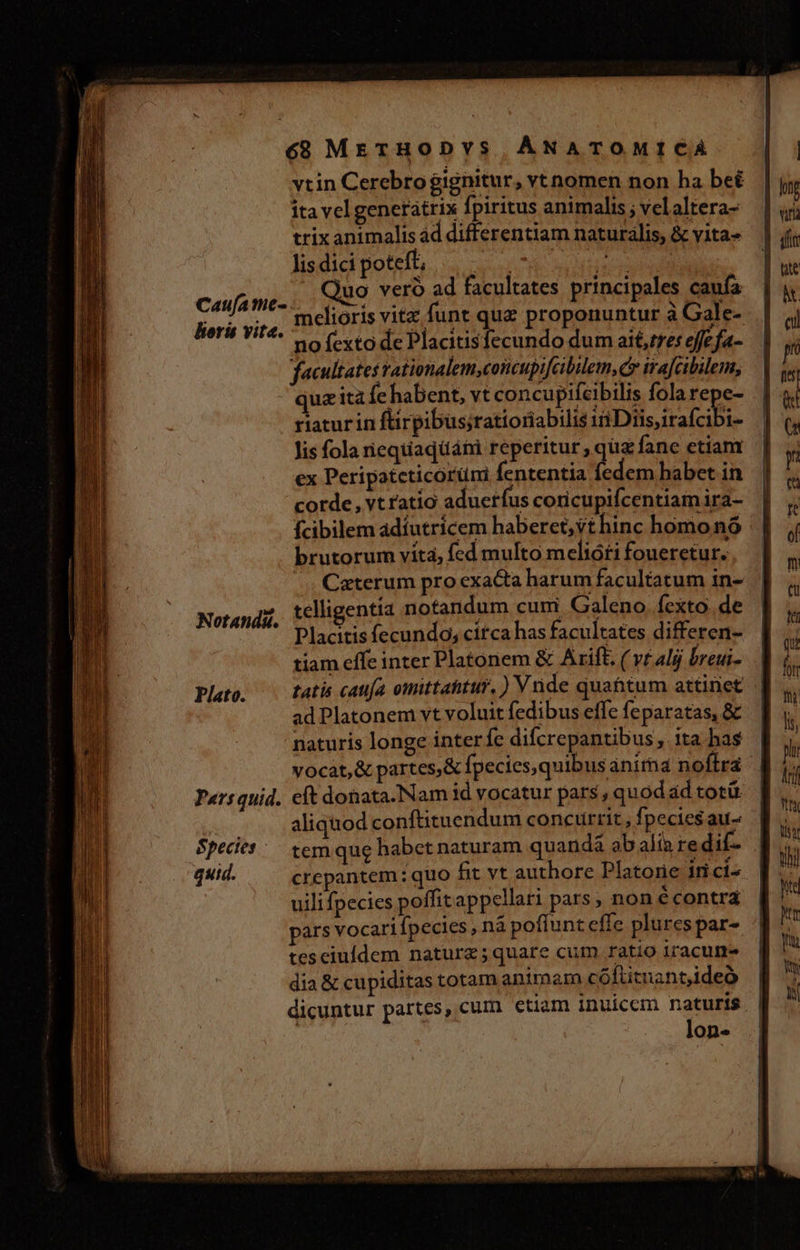 68 METHODVS ANATOMICA
vt in Cerebro gignitur, vt nomen non habeat
ita vel generatrix ſpiritus animalis; vel altera-
trix animalis ad differentiam naturalis, & vita-
lis dici poteſt.
Quo verò ad facultates principales cauſa
Cauſa me-
lioris vitæ.
melioris vitæ ſunt quæ proponuntur à Gale-
no ſexto de Placitis ſecundo dum ait, tres eſſe fa-
facultates rationalem, concupiſcibilem, & iraſcibilem,
quæ ita ſe habent, vt concupiſcibilis ſola repe-
riatur in ſtirpibus; rationabilis in Diis, iraſcibi-
lis ſola nequaquàm reperitur, quæ ſane etiam
ex Peripateticorũm ſententia ſedem habet in
corde, vt ratio aduerſus concupiſcentiam ira-
ſcibilem adiutricem haberet, vt hinc homo nõ
brutorum vita, ſed multo meliori foueretur.
Cæterum pro exacta harum facultatum in-
Notandũ.
telligentia notandum cum Galeno ſexto de
Placitis ſecundo, circa has facultates differen-
tiam eſſe inter Platonem & Ariſt. (vt alij breui-
Plato.
tatis cauſa omittantur.) Vnde quantum attinet
ad Platonem vt voluit ſedibus eſſe ſeparatas, &
naturis longe inter ſe diſcrepantibus, ita has
vocat, & partes, & ſpecies, quibus anima noſtra
Pars quid.
eſt donata. Nam id vocatur pars, quod ad totũ
aliquod conſtituendum concurrit, ſpecies au-
Species
quid.
tem quę habet naturam quandã ab alia re diſ-
crepantem: quo fit vt authore Platone in ci-
uili ſpecies poſſit appellari pars, non è contra
pars vocari ſpecies, nã poſſunt eſſe plures par-
tes eiuſdem naturæ; quare cum ratio iracun-
dia & cupiditas totam animam cõſtituant, ideò
dicuntur partes, cum etiam inuicem naturis
lon-